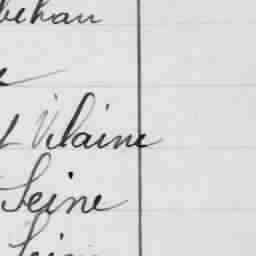 bihan
t Vilaine
Seine
Seine